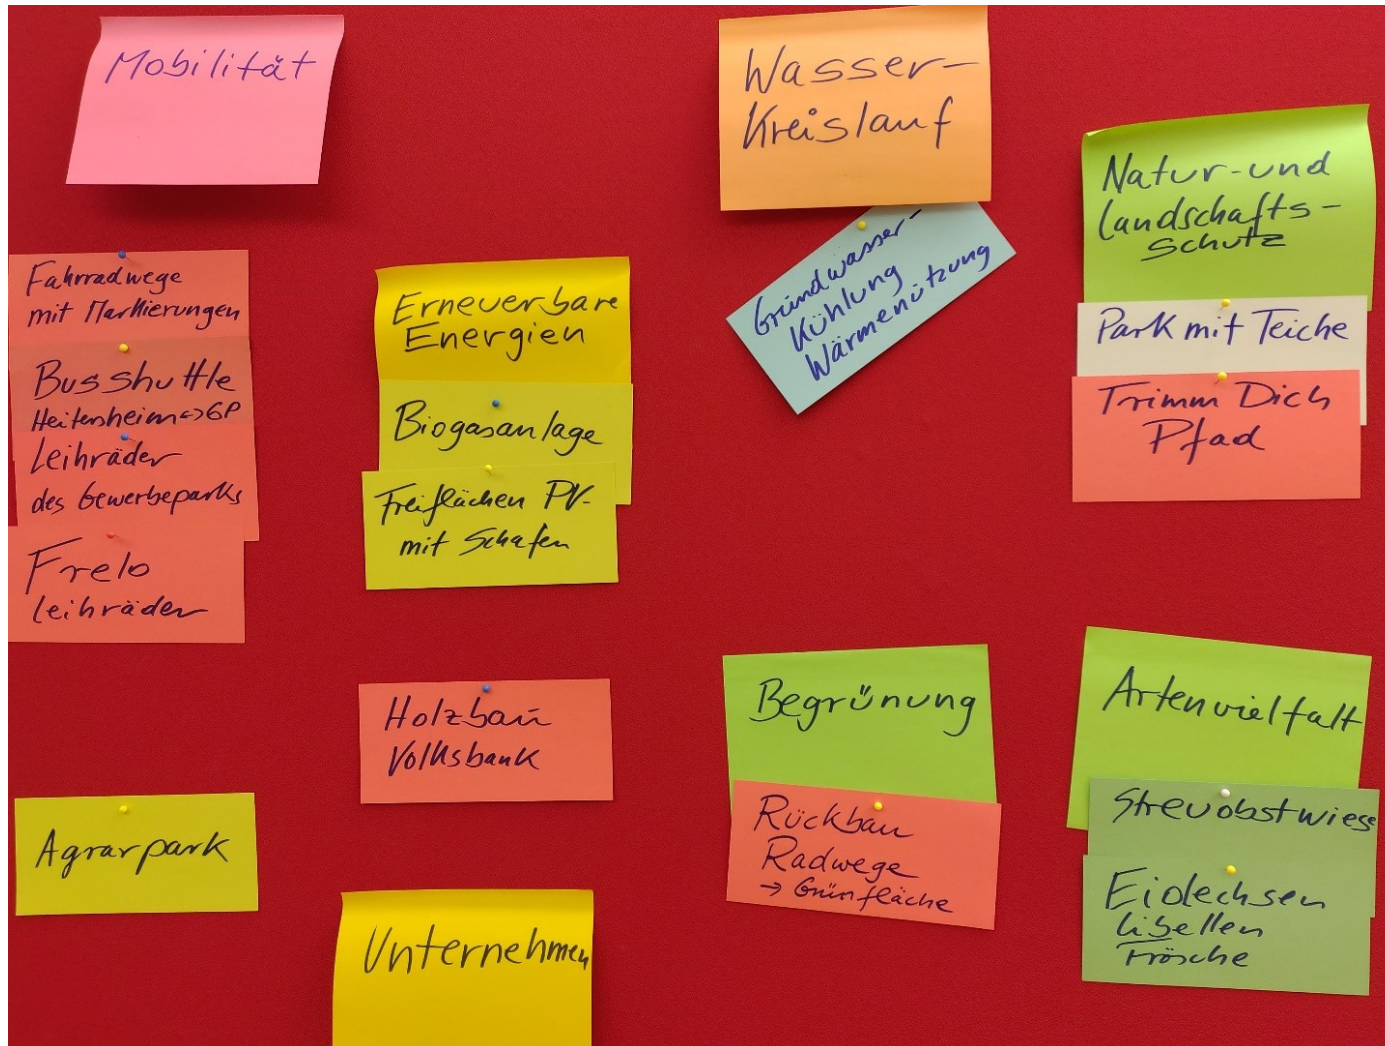 Mobilität
Fahrradwege
mit Markierungen
Busshuttle
Heitersheim<->GP
Leihräder
des Gewerbeparks
Frelo
Leihräder
Agrarpark
Erneuerbare
Energien
Biogasanlage
Freiflächen PV-
mit Schafen
Holzbau
Volksbank
Unternehmen
Wasser-
Kreislauf
Grundwasser-
Kühlung
Wärmenutzung
Begrünung
Rückbau
Radwege
→ Grünfläche
Natur-und
Landschafts-
Schutz
Park mit Teiche
Trimm Dich
Pfad
Artenvielfalt
Streuobstwiese
Eidechsen
Libellen
Frösche